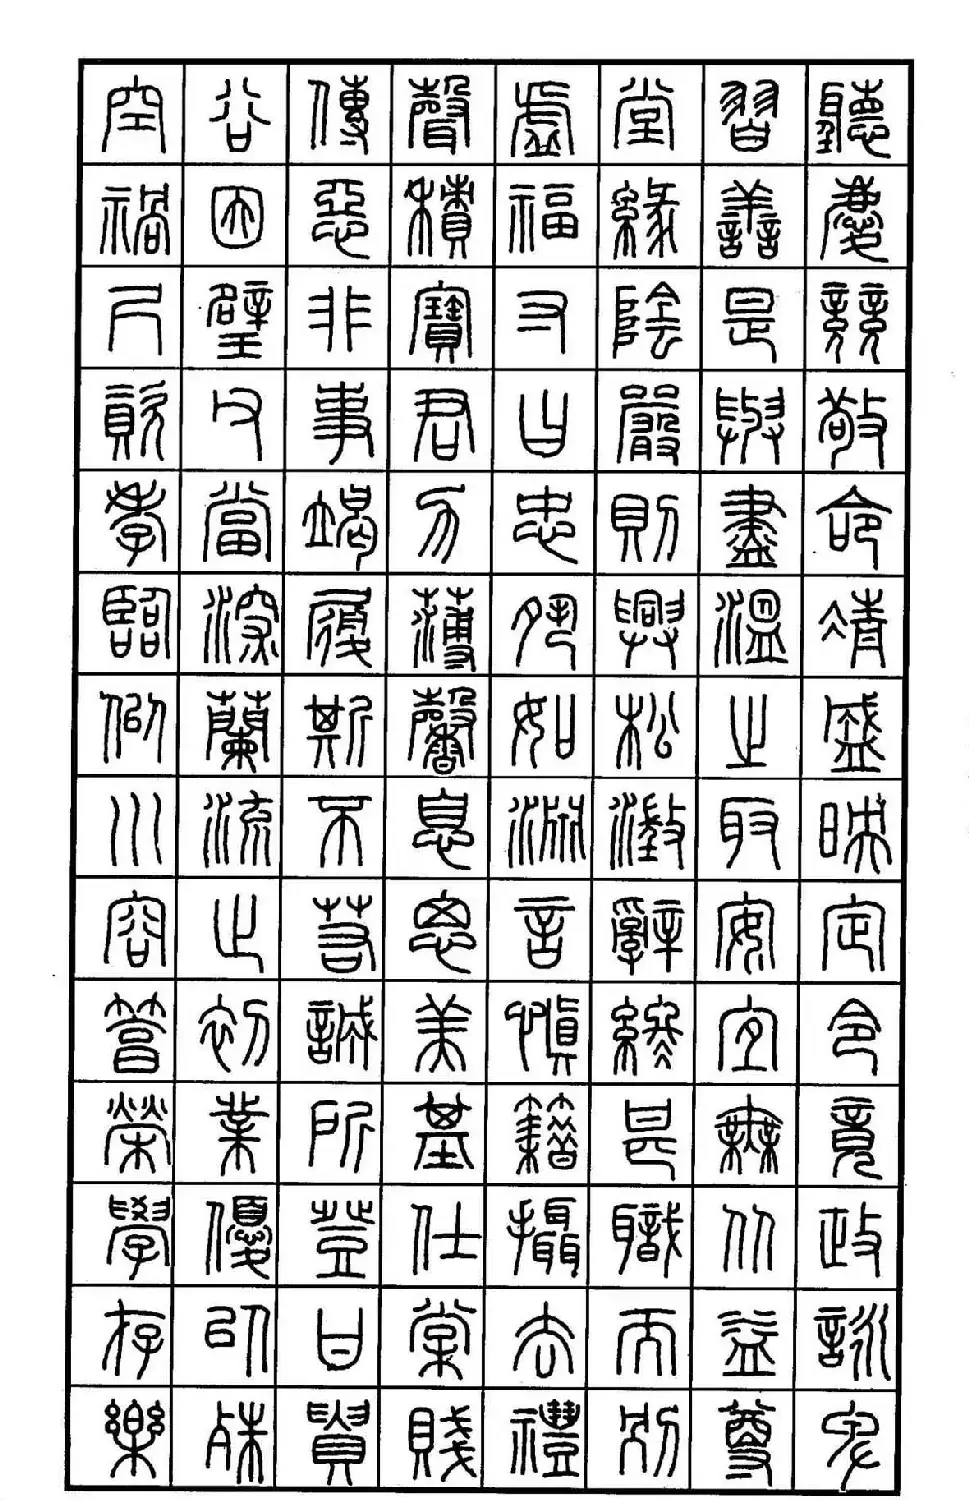 空谷傳聲虛堂習聽
禍因惡積福緣善慶
尺璧非寶寸陰是競
資父事君曰嚴與敬
孝當竭力忠則盡命
臨深履薄夙興溫凊
似蘭斯馨如松之盛
川流不息淵澂取映
容止若思言辭安定
篤初誠美慎終宜令
榮業所基籍甚無竟
學優登仕攝職從政
存以甘棠去而益詠
樂殊貴賤禮別尊卑